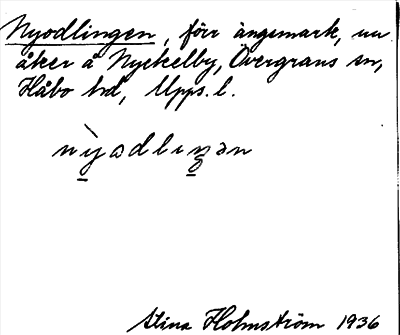 Nyodlingen, förr ängsmark, nu
åker å Nyckelby, Övergrans sn,
Håbo hd, Upps. l.
nỳ̠ɷdlıŋ̠ən
Stina Holmström 1936